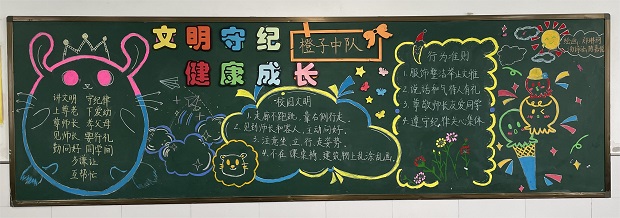 文明守纪
橙子中队
健康成长
讲文明 守纪律
上尊老 下爱幼
尊师长 孝父母
见师长 要行礼
勤问好 同学间
多谦让
互帮忙
校园文明
1.走廊不跑跳,靠右侧行走。
2.见到师长和客人,主动问好。
3.注意坐、立、行走姿势。
4.不在课桌椅、建筑物上乱涂乱画。
行为准则
1.服饰整洁举止大雅
2.说话和气待人有礼
3.尊敬师长友爱同学
4.遵守纪律关心集体